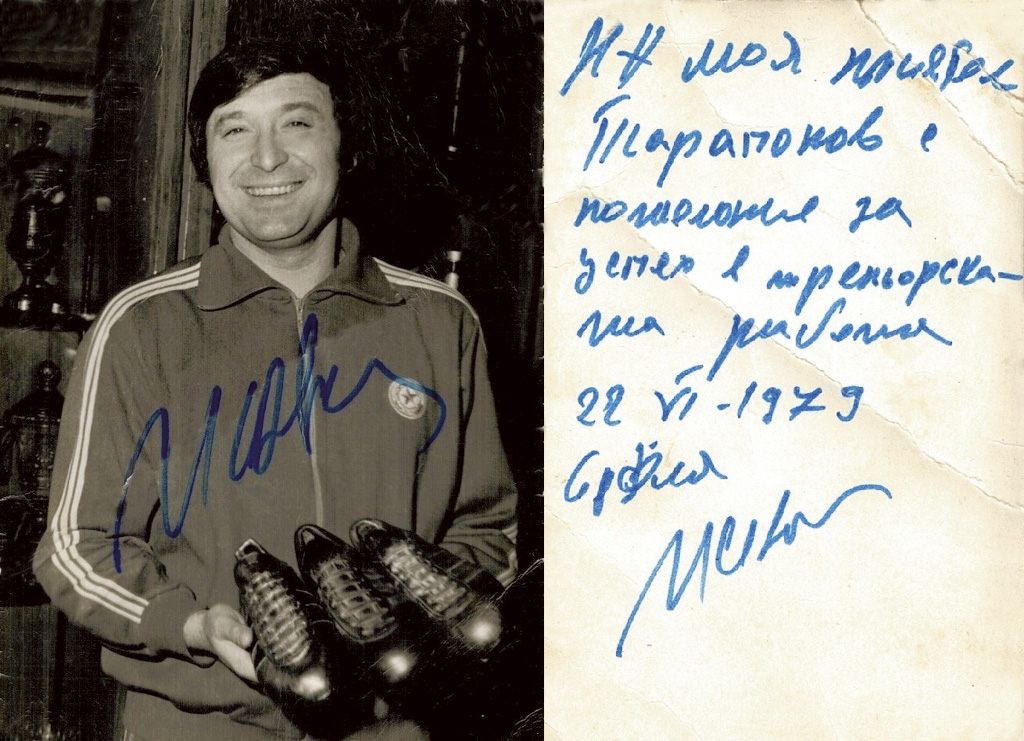 На моя приятел
Тарапонов с
пожелание за
успех в треньорска-
та работа
22 VI - 1979
София